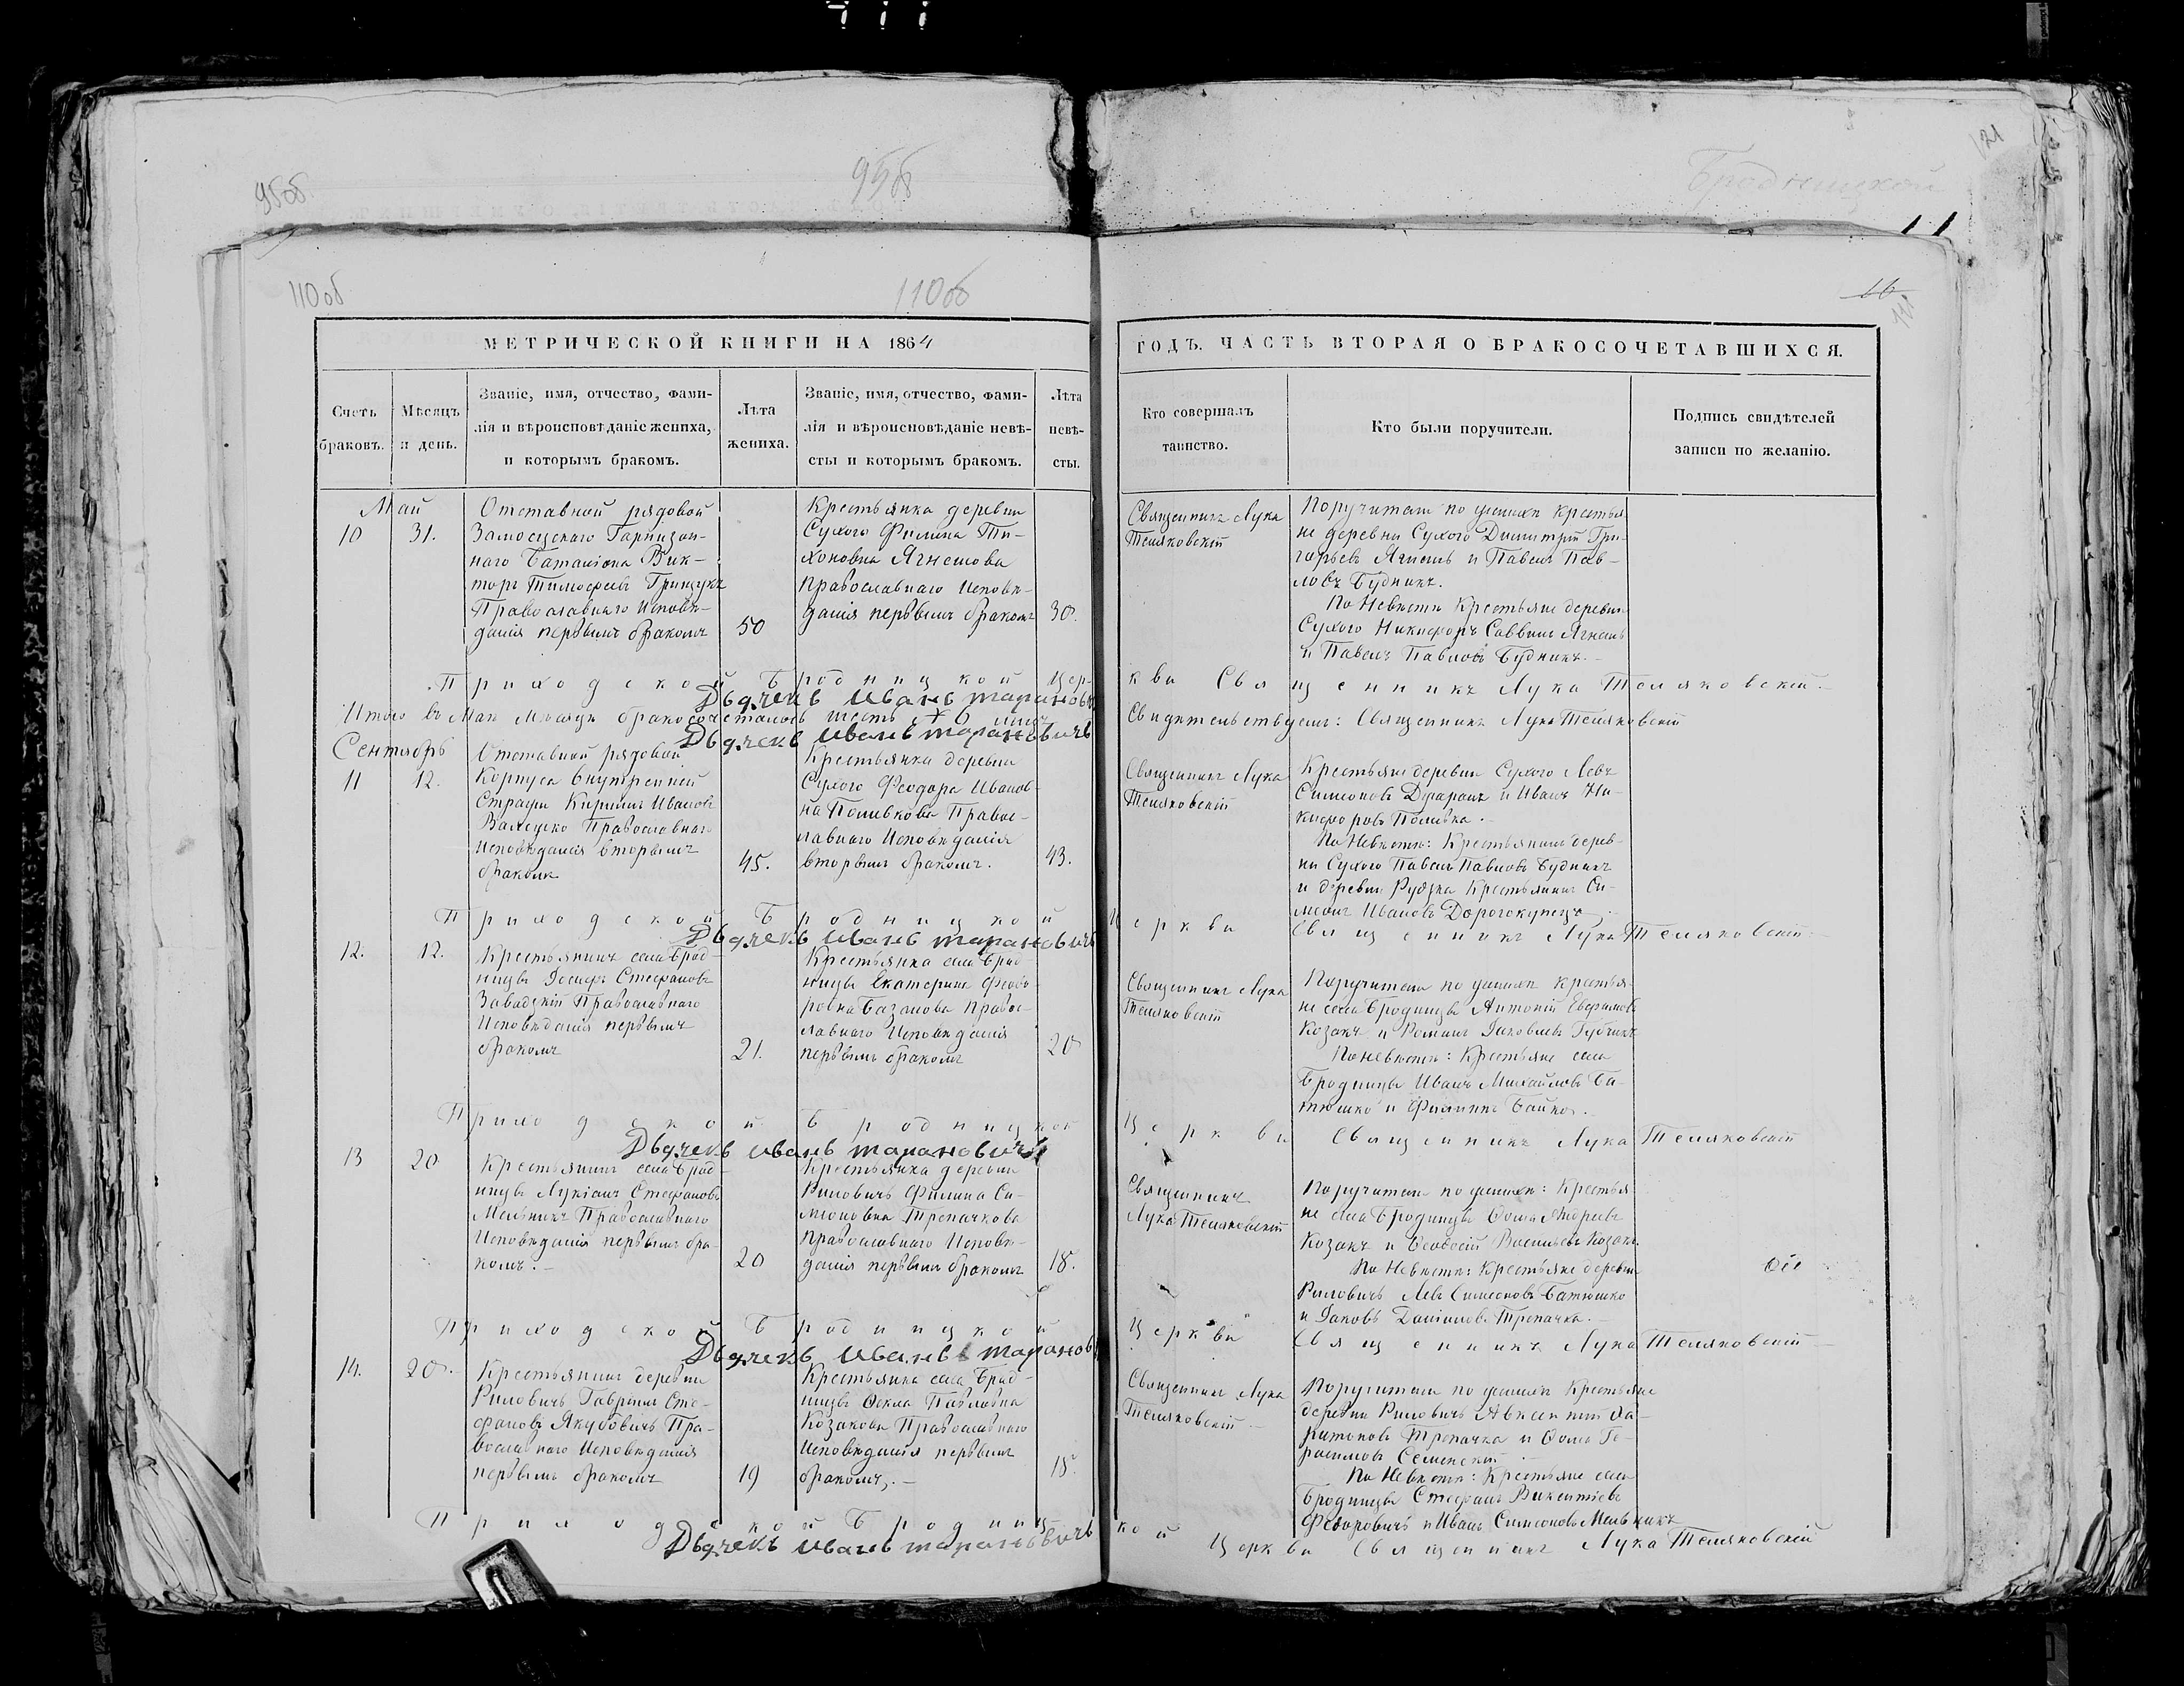 95об
95об
Бродницкой
121
110об
110об
16
МЕТРИЧЕСКОЙ КНИГИ НА 1864
ГОДЪ. ЧАСТЬ ВТОРАЯ О БРАКОСОЧЕТАВШИХСЯ.
Счетъ браковъ.
Мѣсяцъ и день.
Званіе, имя, отчество, фами-
лія и вѣроисповѣданіе жениха,
и которымъ бракомъ.
Лѣта жениха.
Званіе, имя, отчество, фами-
лія и вѣроисповѣданіе невѣ-
сты и которымъ бракомъ.
Лѣта невѣ-
сты.
Кто совершалъ
таинство.
Кто были поручители.
Подпись свидѣтелей
записи по желанію.
Май
10
31.
Отставной рядовой
Замосцскаго Гарнизон-
наго Баталіона Вик-
торъ Тимофеевъ Гринчукъ
Православнаго Исповѣ-
данія первымъ бракомъ
50
Крестьянка деревни
Сухого Филипа Ти-
хоновна Ягнешова
православнаго исповѣ-
данія первымъ бракомъ
30.
Священникъ Лука
Теляковскій
Поручители по женихѣ крестья
не деревни Сухого Димитрій Гри-
горьевъ Ягнешъ и Павелъ Пав-
ловъ Будникъ.
По Невѣстѣ Крестьяне деревни
Сухого Никифоръ Саввинъ Ягнешъ
и Павелъ Павловъ Будникъ.-
Приходской Бродницкой Цер-
кви Священникъ Лука Теляковскій.-
Дьячекъ Иванъ Тарановичъ
Итого въ Маѣ Мѣсяцѣ бракосочеталось шесть лицъ
Свидетельствуемъ: Священникъ Лука Теляковскій
Дьячекъ Иванъ Тарановичъ
Сентябрь
11
12.
Отставной рядовой
Корпуса внутренней
Стражи Кириллъ Ивановъ
Православнаго
Исповѣданія вторымъ
бракомъ
45.
Крестьянка деревни
Сухого Феодора Иванов-
на Поливкова Правос-
лавнаго Исповѣданія
вторымъ бракомъ.
43.
Священникъ Лука
Теляковскій
Крестьяне деревни Сухого Левъ
Симеоновъ и Иванъ Ни-
кифоровъ Поливка.-
По Невѣстѣ: Крестьянинъ дерев-
ни Сухого Павелъ Павловъ Будникъ
и деревни Рудзка Крестьянинъ Си-
меонъ Ивановъ Дорогокупецъ.
Приходской Бродницкой
Церкви Священникъ Лука Теляковскій.-
Дьячекъ Иванъ Тарановичъ
12.
12.
Крестьянинъ села Брод-
ницы Іосифъ Стефановъ
Завадзкій Православнаго
Исповѣданія первымъ
бракомъ
21.
Крестьянка села Брод-
ницы Екатерина Феодо-
ровна Базанова Правос-
лавнаго Исповѣданія
первымъ бракомъ
20
Священникъ Лука
Теляковскій
Поручители по женихѣ крестья-
не села Бродницы Антоній Евфимовъ
Козакъ и Романъ Іаковлевъ Губчикъ
По невѣстѣ: Крестьяне села
Бродницы Иванъ Михайловъ Ба-
тюшко и Филиппъ Бойко.-
Приходской Бродницкой
Церкви Священникъ Лука Теляковскій
Дьячекъ Иванъ Тарановичъ
13
20
Крестьянинъ села Брод-
ницы Лукіанъ Стефановъ
Мельникъ Православнаго
Исповѣданія первымъ бра-
комъ.-
20
Крестьянка деревни
Риловичъ Филипа Си-
меоновна Трепачкова
православнаго Исповѣ-
данія первымъ бракомъ
18.
Священникъ
Лука Теляковскій
Поручители по женихѣ: Крестья
не села Бродницы Ѳома Андреевъ
Козакъ и Ѳеодосій Васильевъ Козакъ.
По Невѣстѣ: Крестьяне деревни
Риловичъ Левъ Симеоновъ Батюшко
и Іаковъ Даніиловъ Трепачка.-
Приходской Бродницкой
Церкви Священникъ Лука Теляковскій
Дьячекъ Иванъ Тарановичъ
14.
20.
Крестьянинъ деревни
Риловичъ Гавріилъ Сте-
фановъ Якубовичъ Пра-
вославнаго Исповѣданія
первымъ бракомъ
19
Крестьянка села Брод-
ницы Ѳекла Павловна
Козакова Православнаго
Исповѣданія первымъ
бракомъ.-
18.
Священникъ Лука
Теляковскій.-
Поручители по женихѣ Крестьяне
деревни Риловичъ Авксентій Ха-
ритоновъ Трепачка и Ѳома Ге-
расимовъ
По Невѣстѣ: Крестьяне села
Бродницы Стефанъ Викентіевъ
Федоровичъ и Иванъ Симеоновъ Мельникъ
Приходской Бродниц-
кой Церкви Священникъ Лука Теляковскій
Дьячекъ Иванъ Тарановичъ